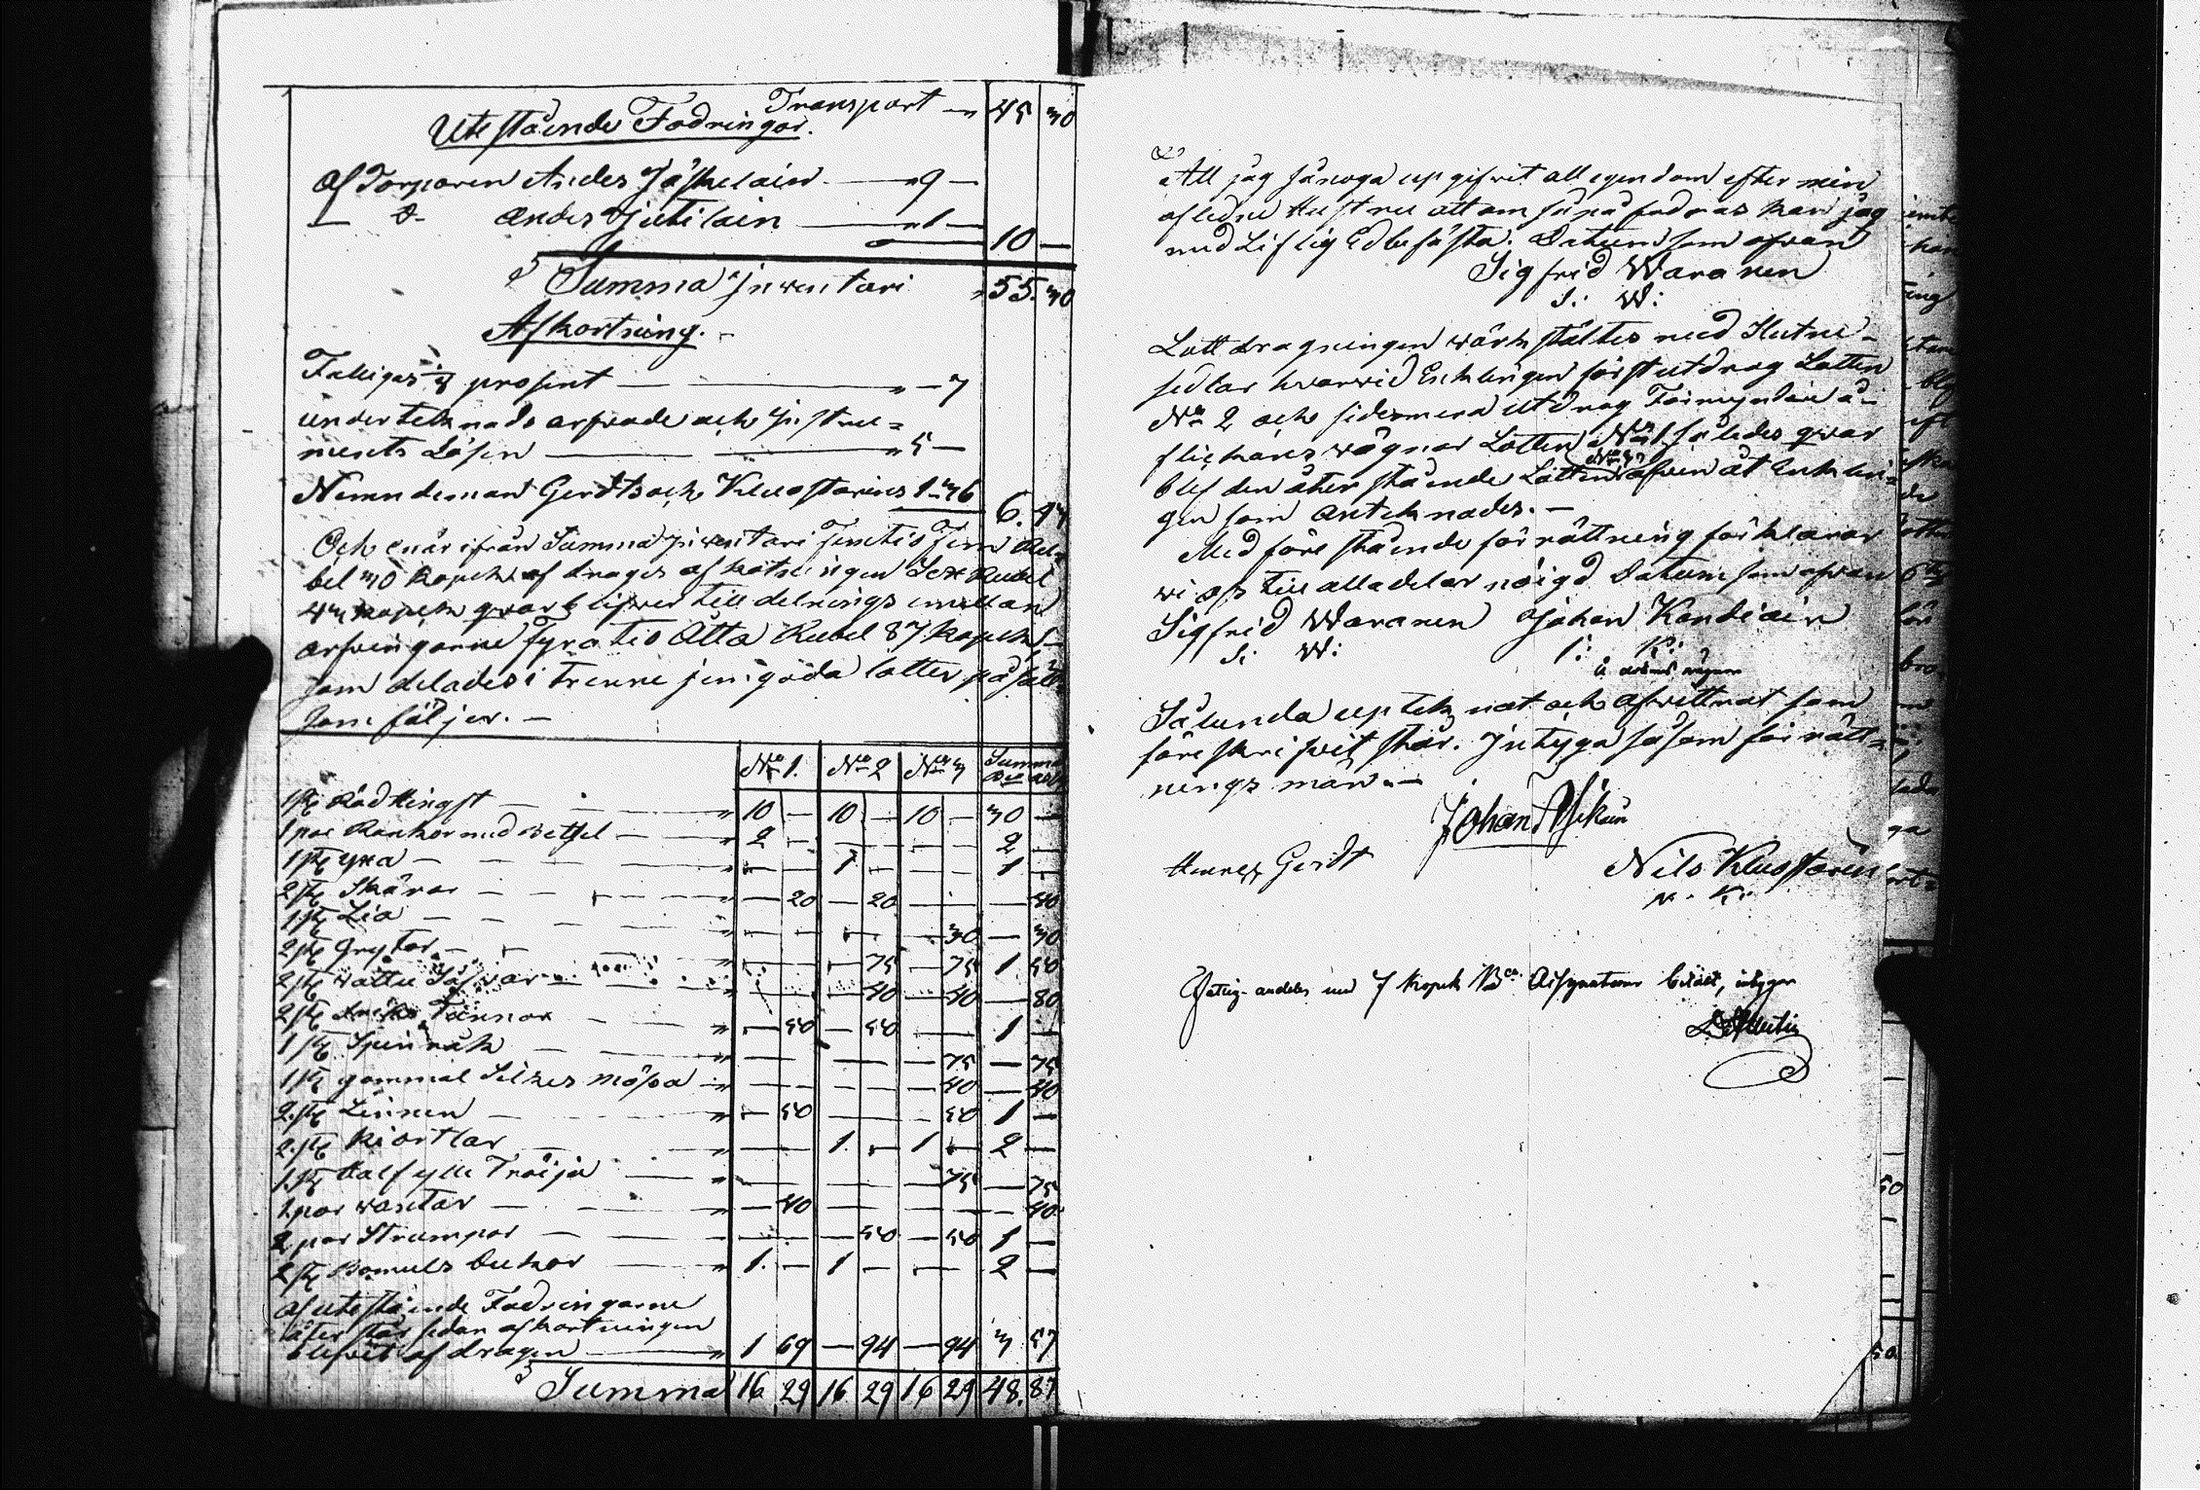 Transport — 45 30
Utestående Fodringar.
Af Torparen Andes Jäskeläin — 9 —
— D- Andes Jutilain — 1 —
10 —
Summa Jnventari 55. 30
Afkortning. —
Fattigas 1/8 prosent — — 7
undertecknads arfvode och Jnstru=
ments Lösen — 5 —
Nemndeman Gerdts och Kluostarins 1 36 6. 43
Och enär ifrån Summa Jnventari Femtio Fem Ru-
bel 30 kopek afdrages afkotningen Sex Rubel
43 kopek qvarblifver till delnings emellan
arfvingarne Fyratio Åtta Rubel 87 kopek,
som delades i trenne jemgoda lotter på sätt
som följer. —
No 1. No 2 No 3 Summa
1 st Röd Hingst — 10 — 10 — 10 — 30 —
1 par Rankor med Betsel — 2 — — — — — 2 —
1 st yxa — — — 1 — — — 1 —
2 st Skäror — — 20 — 20 — — — 40
1 st Lia — — — — — — 30 — 30
2 st Grytor — — — — 75 — 75 1. 50
2 st wattu Såar — — — — 40 — 40 — 80
2 st Tunnor — — 50 — 50 — — 1 —
1 st Spinråk — — — — — — 75 — 75
1 st gammal Silkes mössa — — — — — 40 — 40
2. st Linnen — — 50 — — — 50 1 —
2. st Kiortlar — — — 1. — 1 — 2 —
1. st Halfylle Tröija — — — — — 75 — 75
1. par wantar — — 40 — — — — — 40
2 par Strumpor — — — — 50 — 50 1 —
2 st Bomuls dukor — 1. — 1 — — — 2 —
af utestående Fodringarne
återstår sedan afkortningen
blifvit afdragen — 1 69 — 94 — 94 3 57
Summa 16 29 16 29 16 29 48. 87
Att jag sånoga upgifvit all egendom efter min
aflidne Hustru att om så påfodras kan jag
med Liflig Ed befästa. Datum som ofvan
Sigfrid Waranen
S: W:
Lott dragningen wärkstältes med Slutne-
sedlar hvarvid Enklingen först utdrog Lotten
No 2 och sidermera utdrog Förmyndaren å-
flickans wägnar Lotten No 1 således qvar
blef den återstående Lotten No 3 äfven åt Enklin-
gen som anteknades. —
Med förestående förrättning förklarar
wi oss till alla delar nöigd Datum som ofvan
Sigfrid Waranen Johan Kandiain
S: W: J: K:
å wägnar
Sålunda upteknat och afvittrat som
föreskrifvit står. Jntyga såsom förrätt-
nings män. —
Johan
Henrik Gerdt Nils Kluostarin
N. K.
Fattig-andelen med 7 kopek Bco Assignationer betalt, intygar